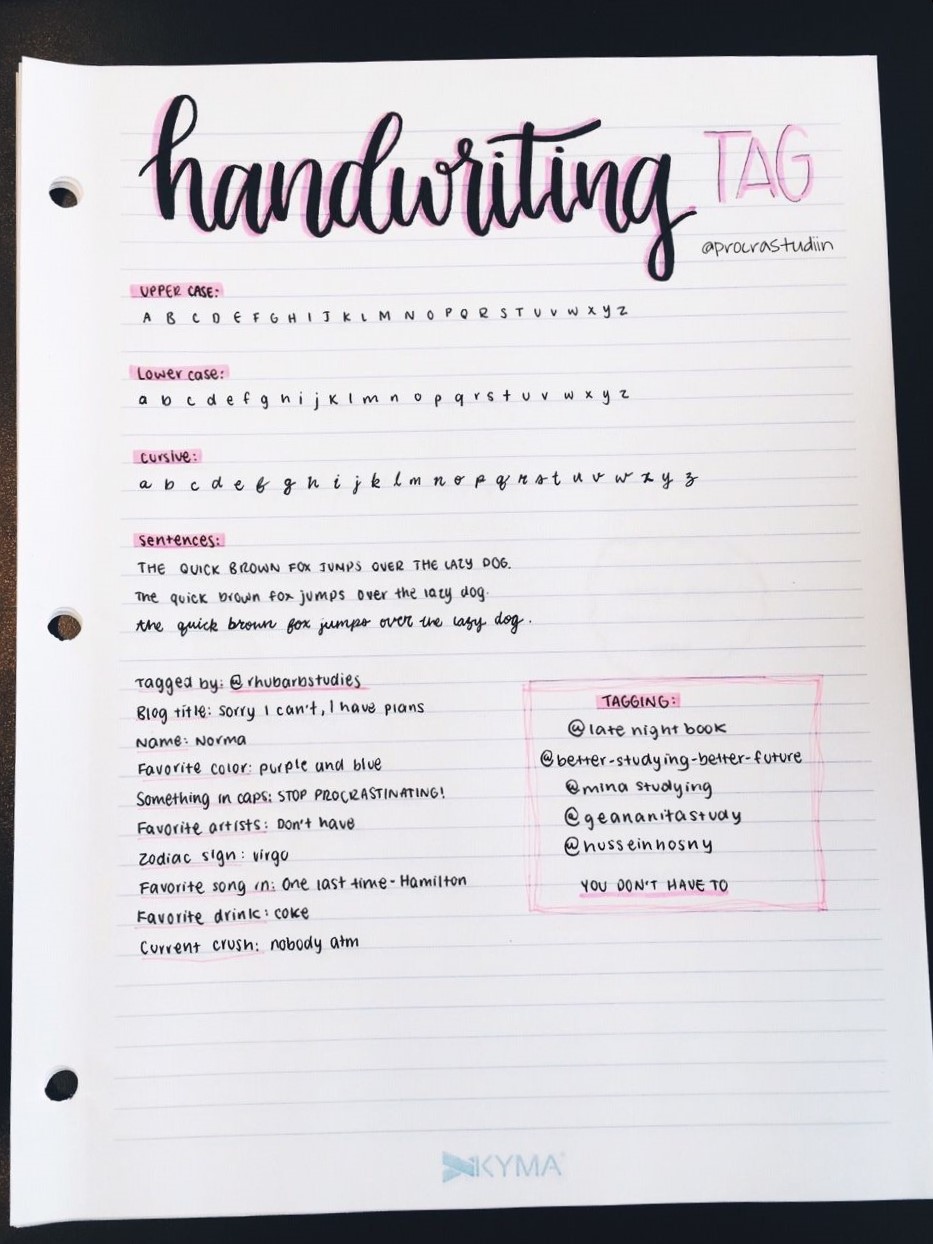 handwriting TAG
@procrastudiin
UPPER CASE:
A B C D E F G H I J K L M N O P Q R S T U V W X Y Z
Lower case:
a b c d e f g h i j k l m n o p q r s t u v w x y z
cursive:
a b c d e f g h i j k l m n o p q r s t u v w x y z
sentences:
THE QUICK BROWN FOX JUMPS OVER THE LAZY DOG.
The quick brown fox jumps over the lazy dog.
the quick brown fox jumps over the lazy dog.
Tagged by: @rhubarbstudies
Blog title: sorry I can't, I have plans
Name: Norma
Favorite color: purple and blue
Something in caps: STOP PROCRASTINATING!
Favorite artists: Don't have
Zodiac sign: virgo
Favorite song in: One last time - Hamilton
Favorite drink: coke
Current crush: nobody atm
TAGGING:
@late night book
@better-studying-better-future
@mina studying
@geananitastudy
@husseinhosny
YOU DON'T HAVE TO
KYMA